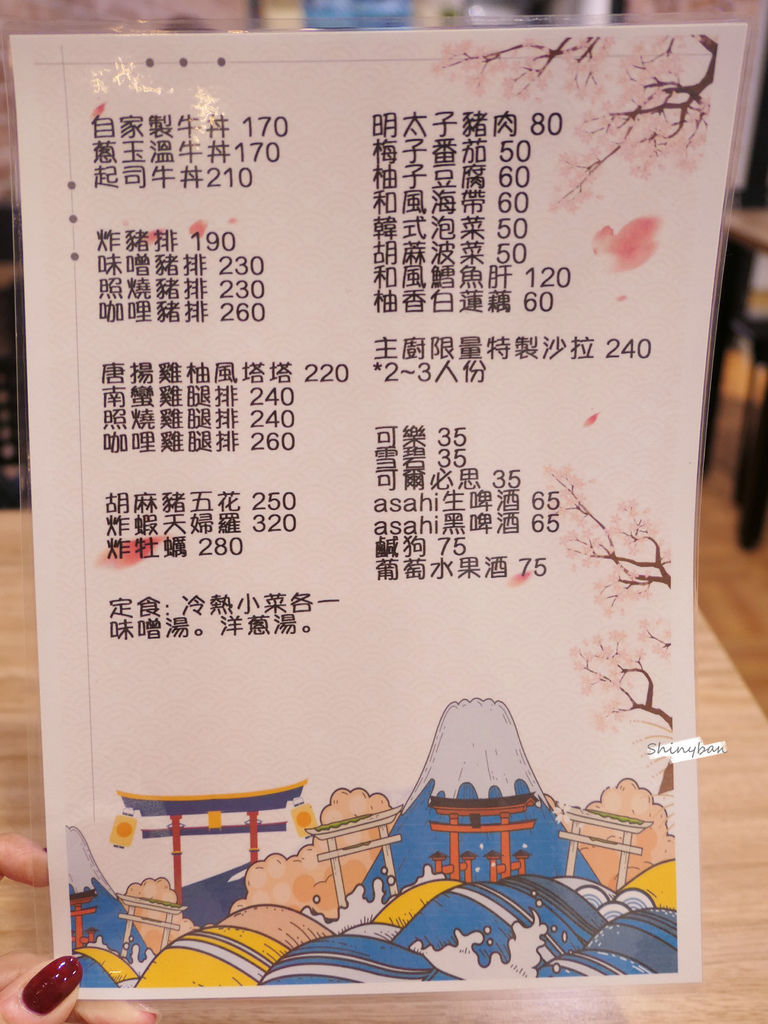 自家製牛丼 170
蔥玉溫牛丼170
起司牛丼210
炸豬排 190
味噌豬排 230
照燒豬排 230
咖哩豬排 260
唐揚雞柚風塔塔 220
南蠻雞腿排 240
照燒雞腿排 240
咖哩雞腿排 260
胡麻豬五花 250
炸蝦天婦羅 320
炸牡蠣 280
定食: 冷熱小菜各一
味噌湯。洋蔥湯。
明太子豬肉 80
梅子番茄 50
柚子豆腐 60
和風海帶 60
韓式泡菜 50
胡蔴波菜 50
和風鱈魚肝 120
柚香白蓮藕 60
主廚限量特製沙拉 240
*2~3人份
可樂 35
雪碧 35
可爾必思 35
asahi生啤酒 65
asahi黑啤酒 65
鹹狗 75
葡萄水果酒 75
Shinyban